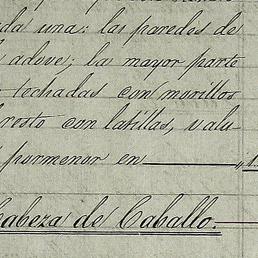 da una: las paredes de
adove; la mayor parte
techadas con morillos
resto con latillas, valu-
pormenor en
Cabeza de Caballo.